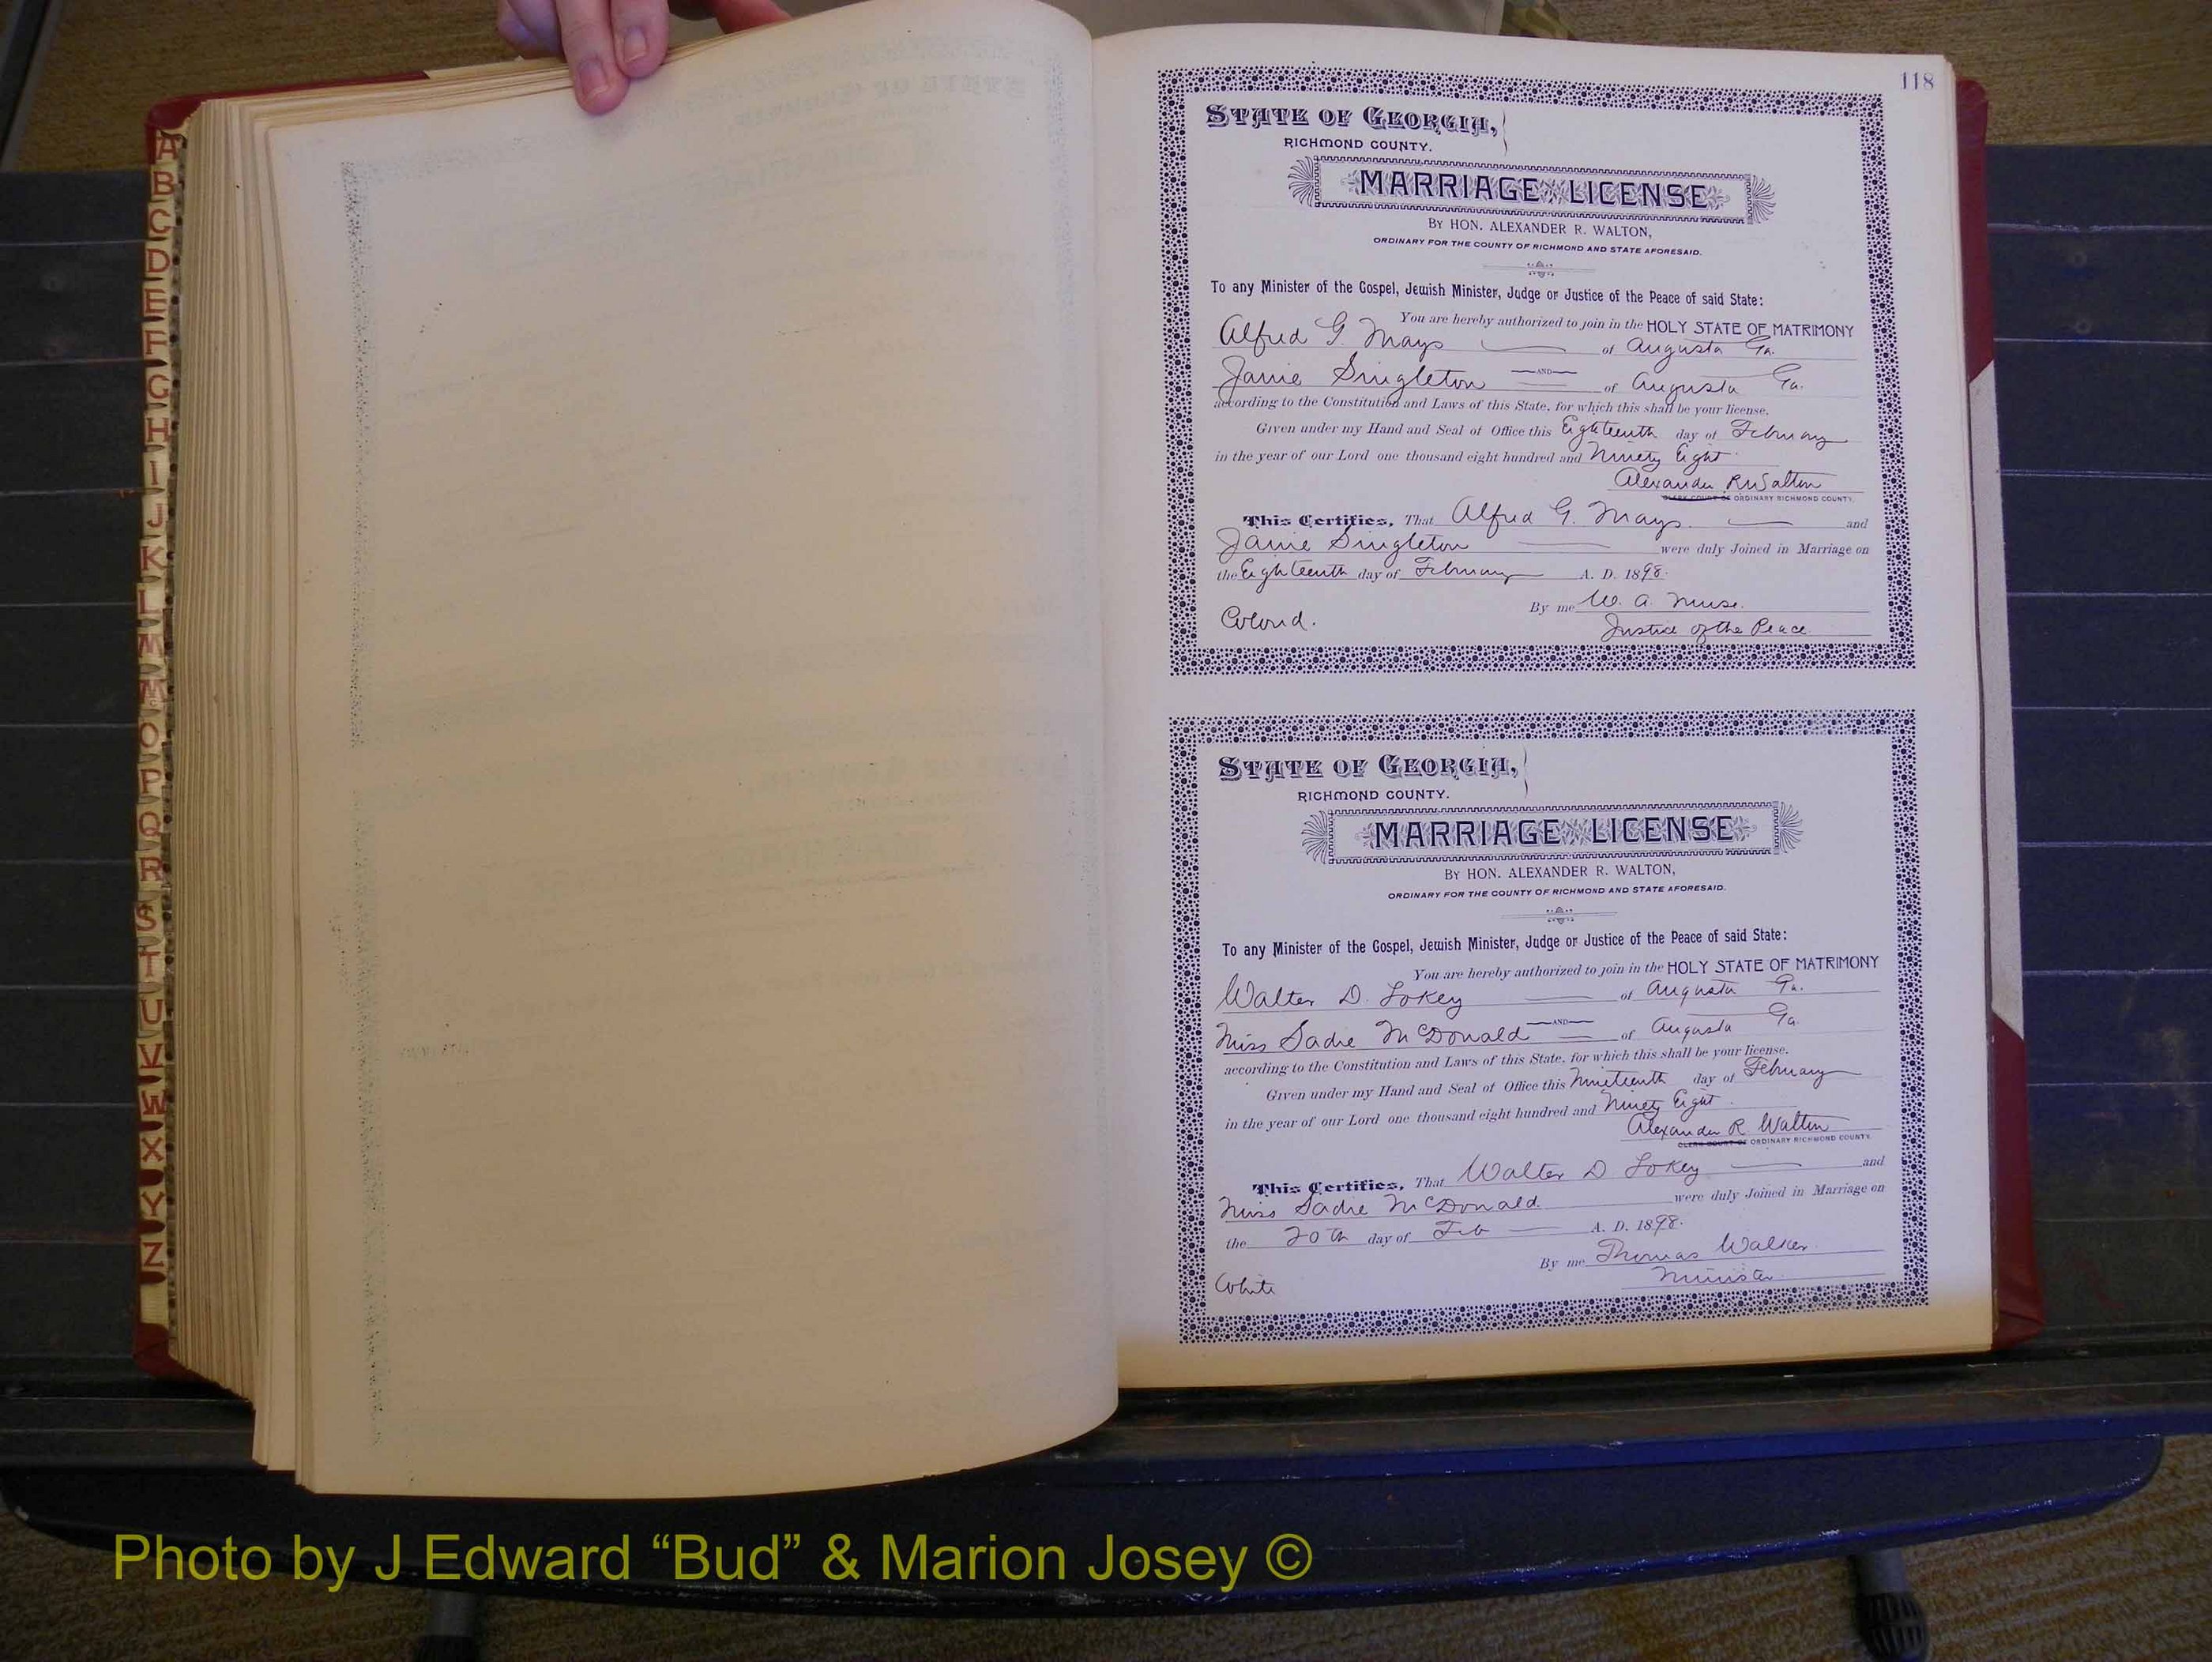 A
B
C
D
E
F
G
H
I
J
K
L
M
Mc
O
P
Q
R
S
T
U
V
W
X
Y
Z
118
STATE OF GEORGIA,
RICHMOND COUNTY.
MARRIAGE LICENSE
BY HON. ALEXANDER R. WALTON,
ORDINARY FOR THE COUNTY OF RICHMOND AND STATE AFORESAID.
To any Minister of the Gospel, Jewish Minister, Judge or Justice of the Peace of said State:
You are hereby authorized to join in the HOLY STATE OF MATRIMONY
Alfred G. Mays of Augusta Ga.
AND
Janie Singleton of Augusta Ga.
according to the Constitution and Laws of this State, for which this shall be your license.
Given under my Hand and Seal of Office this Eighteenth day of February
in the year of our Lord one thousand eight hundred and Ninety Eight
Alexander R Walton
CLERK COURT OF ORDINARY RICHMOND COUNTY.
This Certifies, That Alfred G. Mays and
Janie Singleton were duly Joined in Marriage on
the Eighteenth day of February A. D. 1898.
By me W. A. Muse.
Colord. Justice of the Peace
STATE OF GEORGIA,
RICHMOND COUNTY.
MARRIAGE LICENSE
BY HON. ALEXANDER R. WALTON,
ORDINARY FOR THE COUNTY OF RICHMOND AND STATE AFORESAID.
To any Minister of the Gospel, Jewish Minister, Judge or Justice of the Peace of said State:
You are hereby authorized to join in the HOLY STATE OF MATRIMONY
Walter D. Lokey of Augusta Ga.
AND
Miss Sadie McDonald of Augusta Ga
according to the Constitution and Laws of this State, for which this shall be your license.
Given under my Hand and Seal of Office this Nineteenth day of February
in the year of our Lord one thousand eight hundred and Ninety Eight.
Alexander R Walton
CLERK COURT OF ORDINARY RICHMOND COUNTY.
This Certifies, That Walter D Lokey and
Miss Sadie McDonald. were duly Joined in Marriage on
the 20th day of Feb A. D. 1898.
By me Thomas Walker
White Minister
Photo by J Edward “Bud” & Marion Josey ©